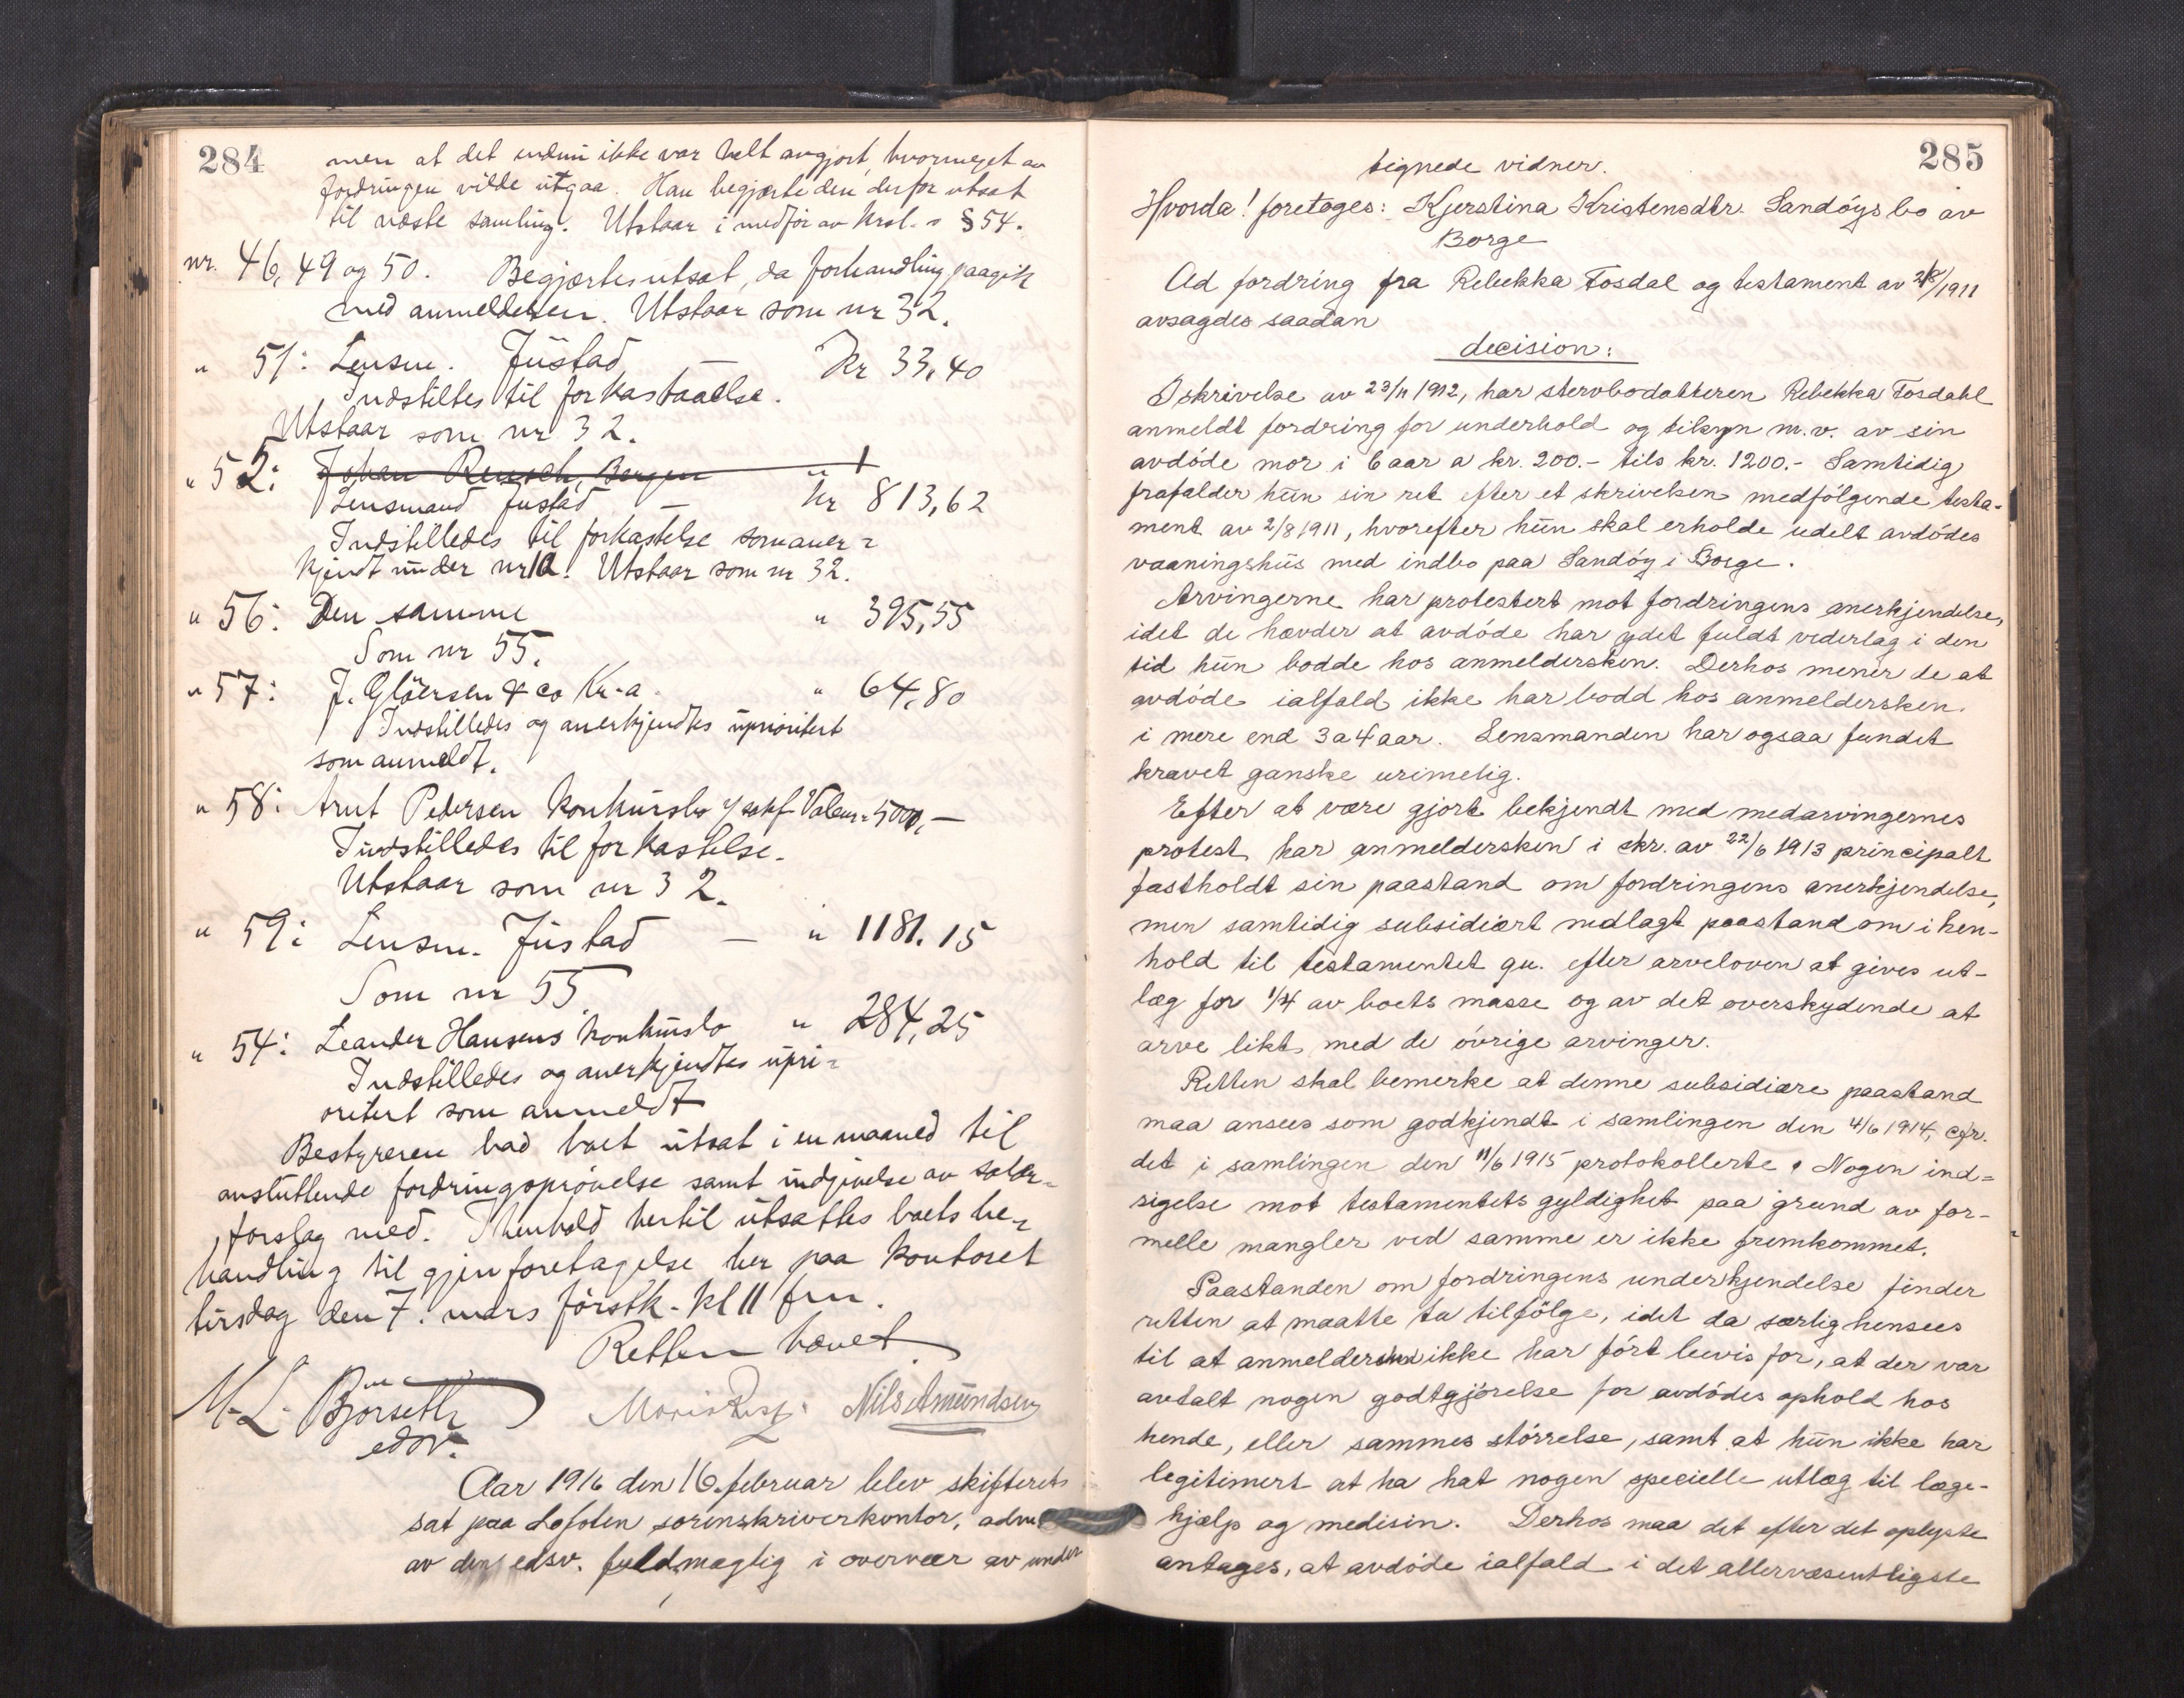 284
men at det endnu ikke var helt avgjort, hvormeget av
fordringen vilde utgaa. Han begjærte den derfor utsat
til næste samling. Utstaar i medfør av Krsl.s § 54.
nr. 46, 49 og 50. Begjærtes utsat, da forhandling paagik
med anmelderen. Utstaar som nr 32.
" 51: Lensm. Justad — Kr 33,40
Indstilles til forkastelse.
Utstaar som nr 32.
" 52: Johan Rensch, Bergen "
Lensmand Justad — kr 813,62
Indstilledes til forkastelse som aner=
kjendt under nr 10. Utstaar som nr 32.
" 56: Den samme " 395,55
Som nr 55.
" 57: J. Glöersen & co Kr.a. " 64,80
Indstilledes og anerkjendtes uprioritert
som anmeldt.
" 58: Arnt Pedersen Konkursbo 5000,—
Indstilledes til forkastelse.
Utstaar som nr 32.
" 59: Lensm. Justad — " 1181.15
Som nr 55
" 54: Leander Hansens konkursbo " 284,25
Indstilledes og anerkjendtes upri=
oritert som anmeldt
Bestyreren bad boet utsat i en maaned til
avsluttende fordringsprøvelse samt indgivelse av salær=
forslag med. I henhold hertil utsattes boets be=
handling til gjenforetagelse her paa kontoret
tirsdag den 7. mars førstk. kl 11 fm.
Retten hævet
M. L. Bjørseth
edsv.
Nils Amundsen
Aar 1916 den 16. februar blev skifterets
sat paa Lofoten sorenskriverkontor, adm
av den edsv. fuldmægtig i overvær av under
285
tegnede vidner.
Hvorda! foretoges: Kjerstina Kristensdtr. Sandöys bo av
Borge
Ad fordring fra Rebekka Tosdal og testament av 2/8/1911
avsagdes saadan
decision:
I skrivelse av 23/11 1912, har stervbodatteren Rebekka Tosdahl
anmeldt fordring for underhold og tilsyn m.v. av sin
avdöde mor i 6 aar a kr. 200.- tils kr. 1200.- Samtidig
frafalder hun sin ret efter et skrivelsen medfölgende testa-
ment av 2/8 1911, hvorefter hun skal erholde udelt avdödes
vaaningshus med indbo paa Sandöy i Borge.
Arvingerne har protestert mot fordringens anerkjendelse,
idet de hævder at avdöde har ydet fuldt vederlag i den
tid hun bodde hos anmeldersken. Derhos mener de at
avdöde ialfald ikke har bodd hos anmeldersken
i mere end 3 a 4 aar. Lensmanden har ogsaa fundet
kravet ganske urimelig.
Efter at være gjort bekjendt med medarvingernes
protest har anmeldersken i skr. av 22/6 1913 principalt
fastholdt sin paastand om fordringens anerkjendelse,
men samtidig subsidiært nedlagt paastand om i hen-
hold til testamentet qu. efter arveloven at gives ut-
læg for 1/4 av boets masse og av det overskydende at
arve likt med de övrige arvinger.
Retten skal bemerke at denne subsidiære paastand
maa ansees som godkjendt i samlingen den 4/6 1914, cfr.
det i samlingen den 11/6 1915 protokollerte. Nogen ind=
sigelse mot testamentets gyldighet paa grund av for-
melle mangler ved samme er ikke fremkommet.
Paastanden om fordringens underkjendelse finder
retten at maatte ta tilfölge, idet da særlig hensees
til at anmeldersken ikke har fört bevis for, at der var
avtalt nogen godtgjörelse for avdödes ophold hos
hende, eller sammes störrelse, samt at hun ikke har
legitimert at ha hat nogen specielle utlæg til læge-
hjælp og medisin. Derhos maa det efter det oplyste
antages, at avdöde ialfald i det allervæsentligste